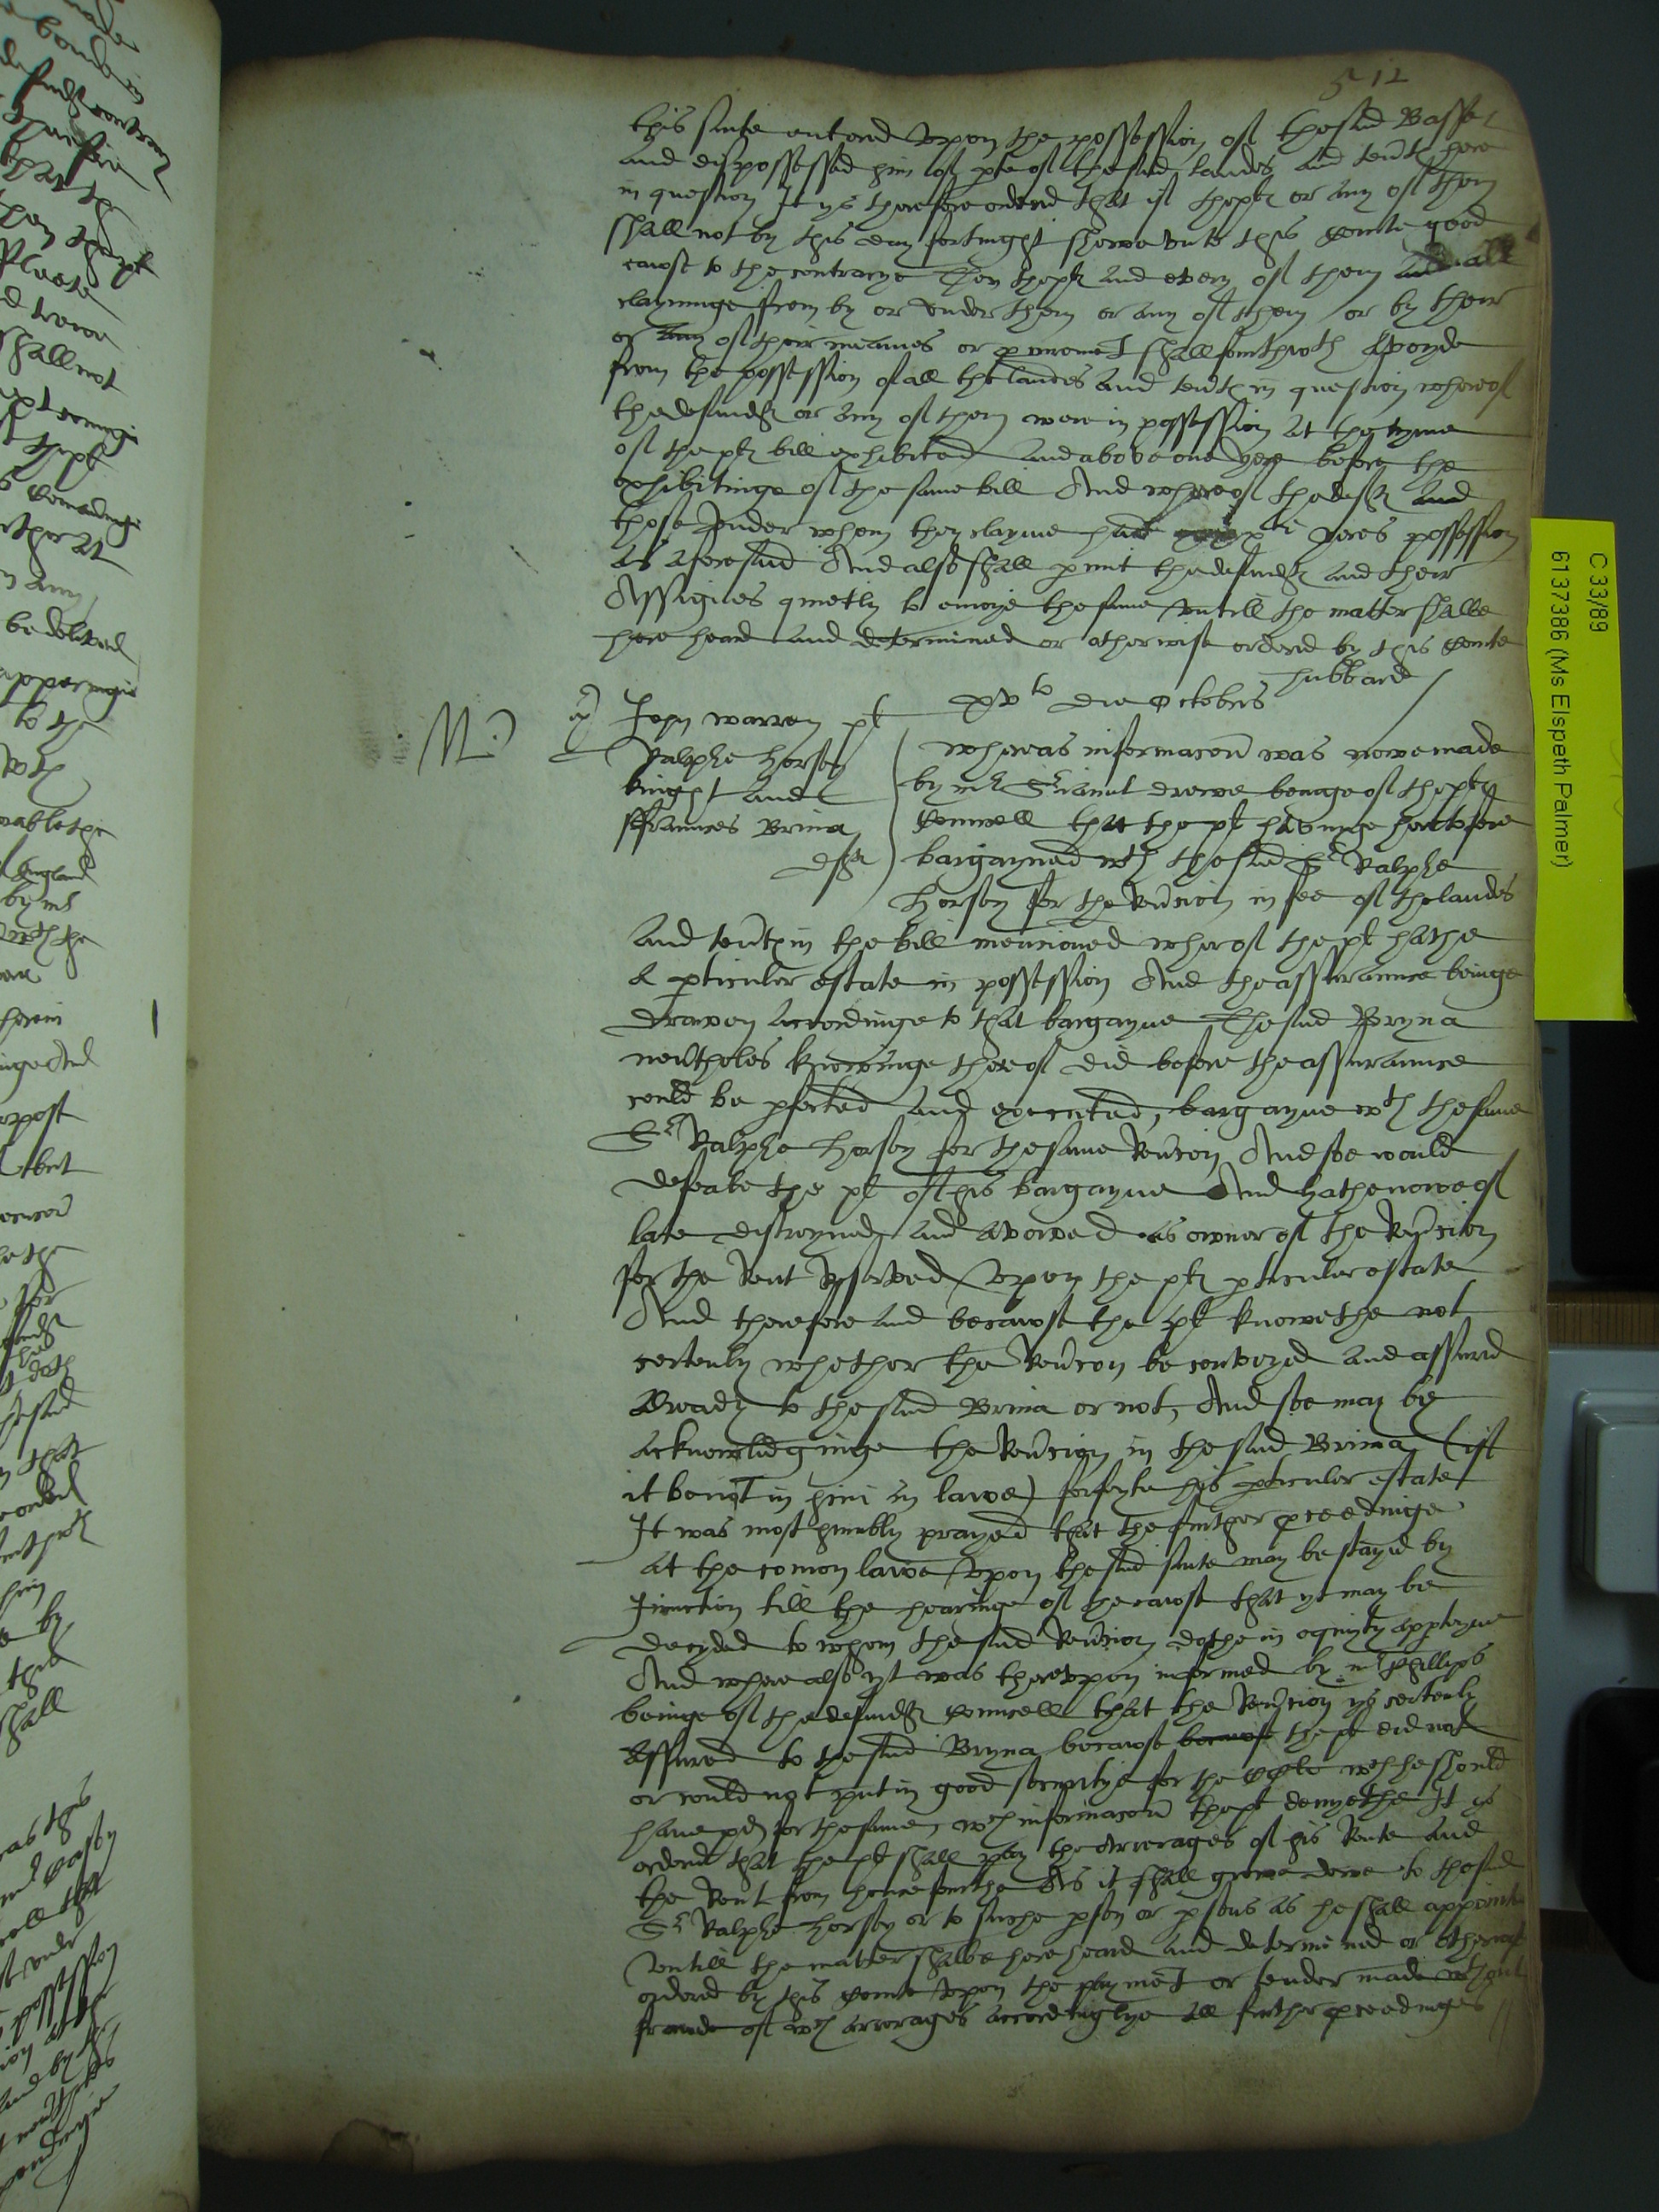 512
this suite entred vpon the possession of the said Basset
and dispossessed him of pte of the said landes and tentes here
in question It ys therefore ordered that if the plt or any of them
shall not by this day fortnight shewe vnto this Courte good
cawse to the contrarye Then the plt and every of them and all
clayminge from by or vnder them or any of them or by their
or any of their meanes or pcurement shall fourthwth Avoyde
from the possession of all the landes and tentes in question whereof
the defendtes or any of them were in possession at the tyme
of the plt bill exhibited and above one yere before the
exhibitinge of the same bill And whereof the deftes and
those vnder whom they clayme had yeres possession
as aforesaid And also shall pmit the defendtes and their
Assignes quietly to enioye the same vntill the matter shalbe
here heard and determined or otherwise ordered by this Courte
hubbard
xvto die Octobris
John warren plt
Ralphe Horsey
knight and
ffraunces Brina
deftes
whereas informacon was nowe made
by mr Sriaunt drewe beinge of the pltes
Councell that the plt havinge heretofore
bargayned wth the said Sr Ralphe
Horsey for the Reucion in fee of the landes
and tentes in the bill mencioned whereof the plt hathe
a pticuler estate in possession And the assuraunce beinge
drawen accordinge to that bargayne The said Bryna
neutheles knowinge thereof did before the assuraunce
could be pfected and executed, bargayne wth the same
Sr Ralphe Horsey for the same Reucon And soe would
defeate the plt of his bargayne And hathe nowe of
late distreyned and avowed as owner of the Reucion
for the Rent Reserved vpon the plt pticuler estate
And therefore and because the plt knowethe not
certenly whether the Reucon be conveyed and assured
Already to the said Brina or not, And soe may by
acknowledginge the Reucion in the said Brina (if
it be not in him in lawe) forfeyte his pticuler estate
It was most humbly prayed that the further pceedinge
at the comon lawe vpon the said suite may be stayed by
Iniunction till the hearinge of the cawse that yt may be
decyded to whom the said Reucion dothe in equity apptayne
And where also yt was therevpon informed by mr Phillips
beinge of the defendtes Councell that the Reucion ys certenly
assured to the said Bryna because because the plt did not
or could not put in good securitye for the wch he should
have pd for the same, wch informacon the plt denyethe It is
ordered that the plt shall pay the Arrerages of his Rente and
the Rent from henceforthe As it shall growe dewe to the said
Sr Ralphe Horsey or to suche pson or psons as he shall appointe
vntill the matter shalbe here heard and determined or otherwise
ordered by this Courte vpon the payment or tender made wthout
fraude of wch arrerages accordinglye all further pceedinges
C 33/89
6137386 (Ms Elspeth Palmer)